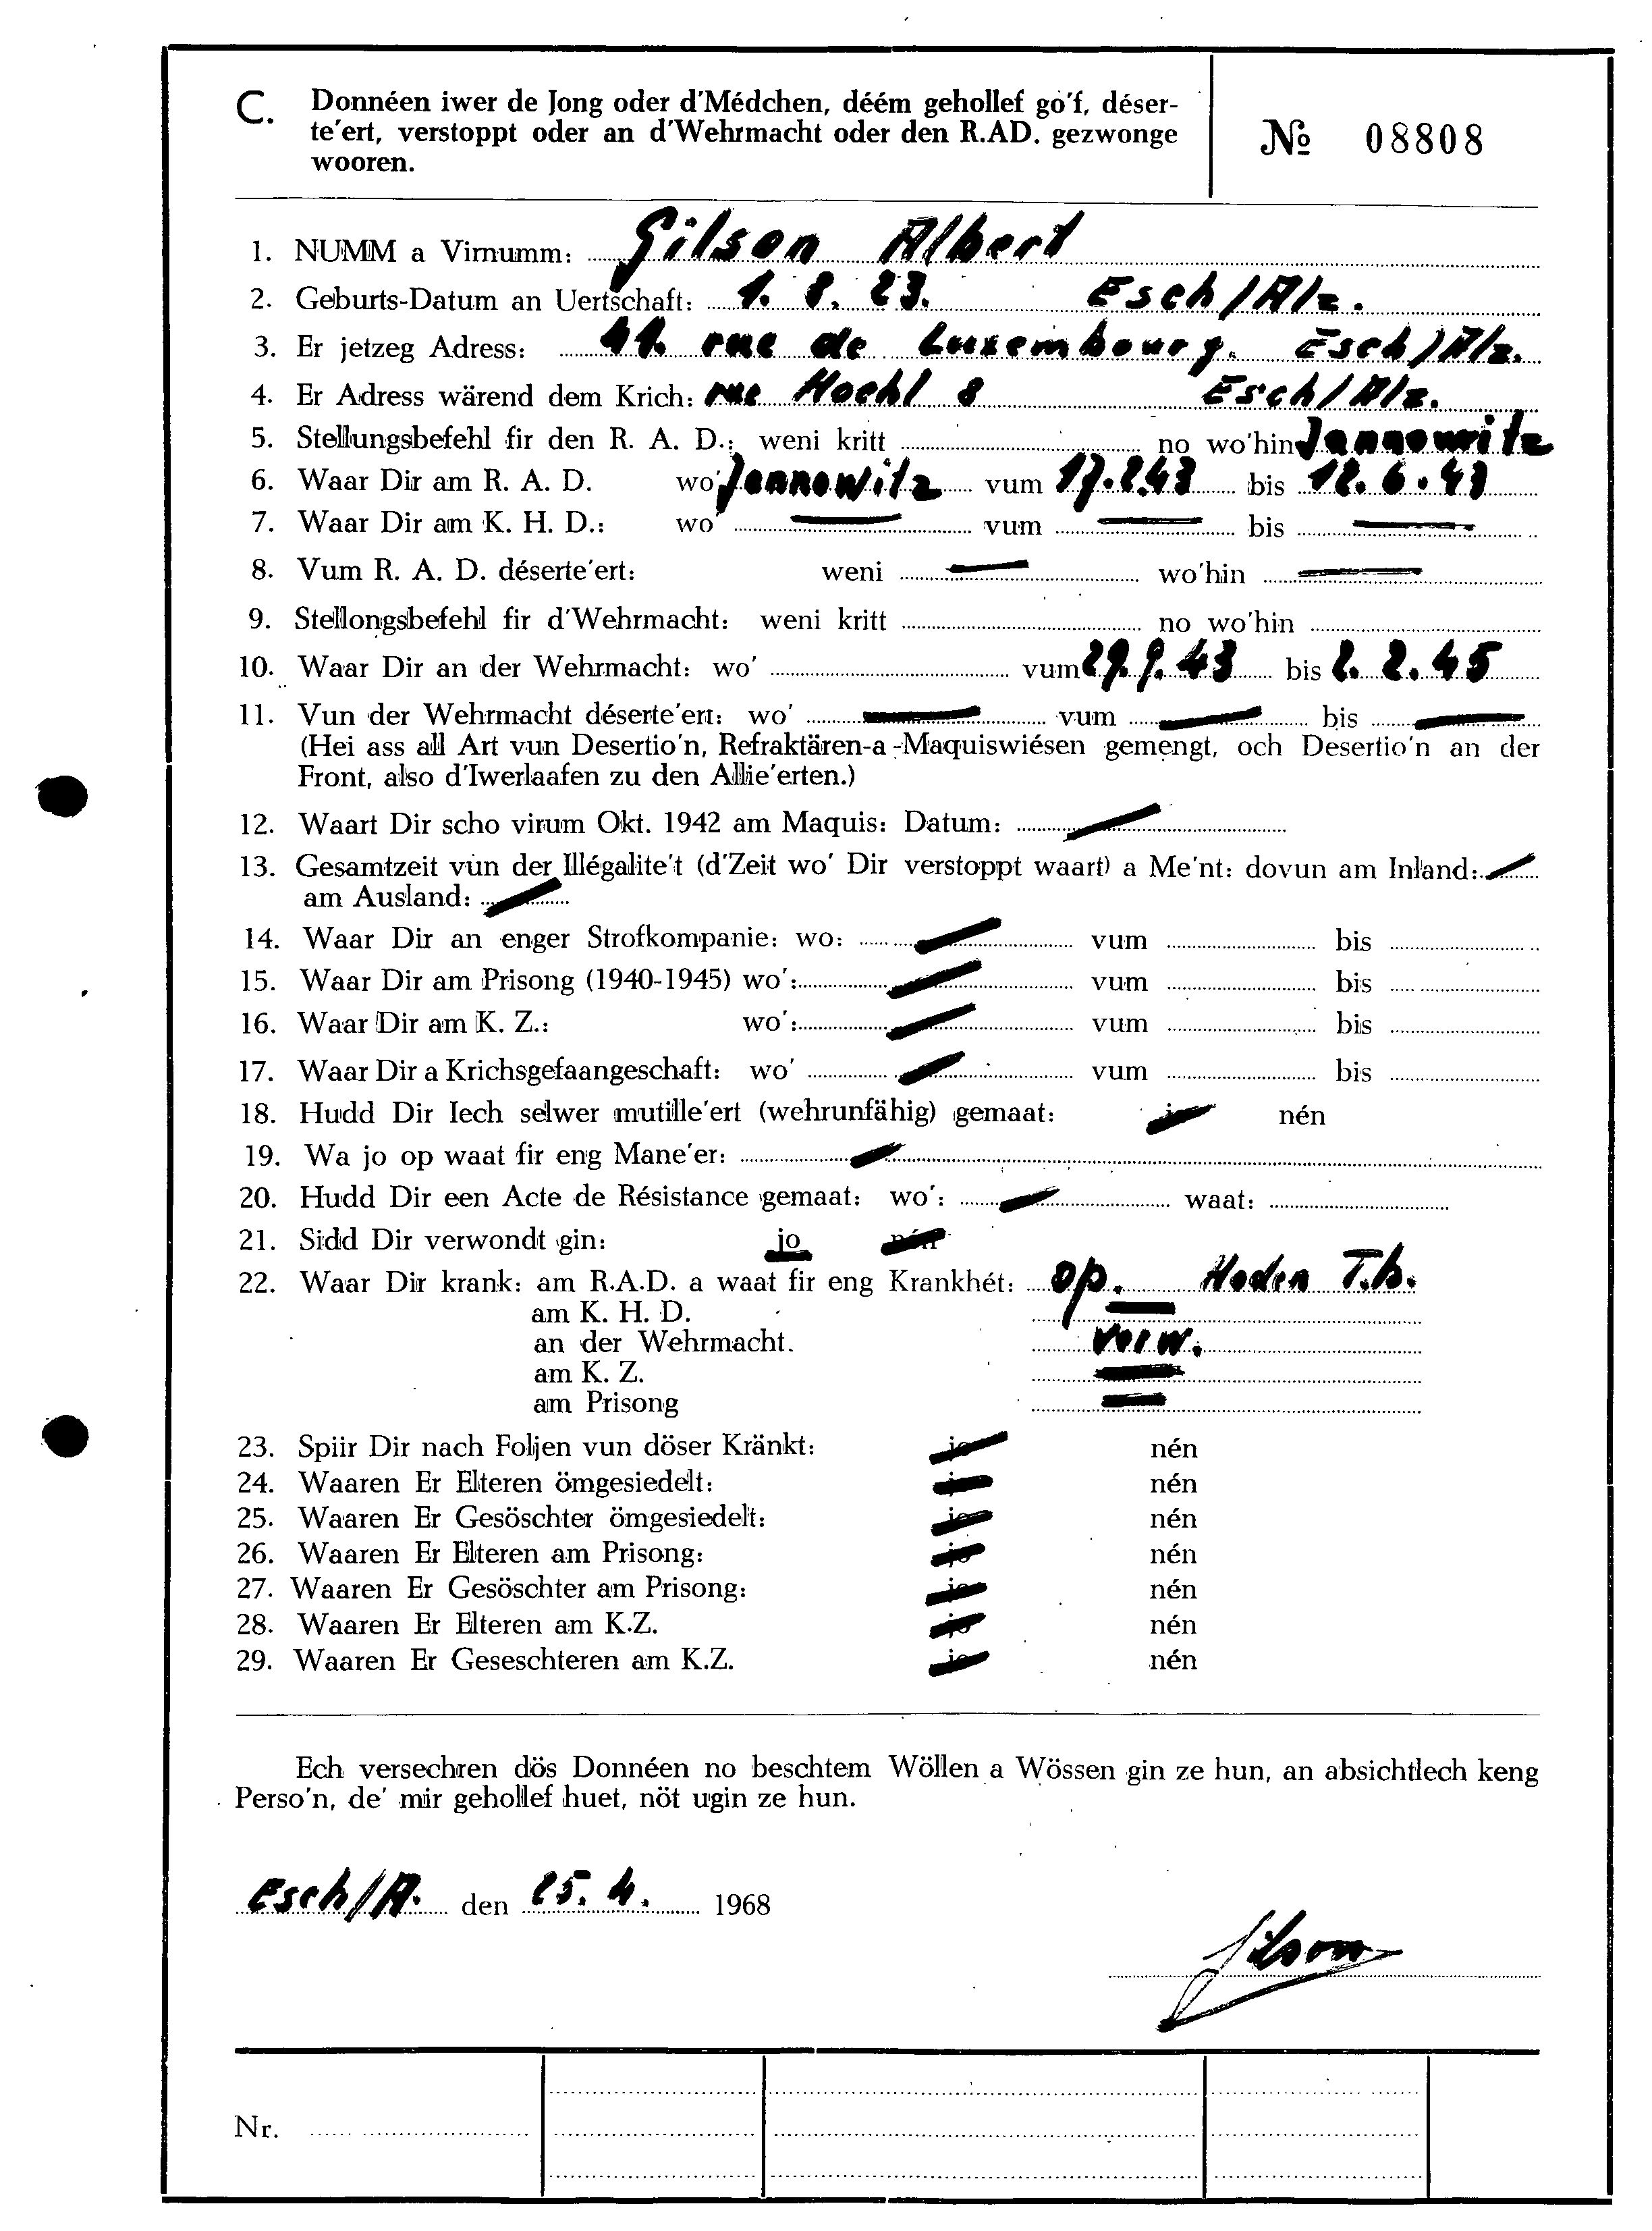 C. Donnéen iwer de Jong oder d'Médchen, déém gehollef go'f, déser-
te'ert, verstoppt oder an d'Wehrmacht oder den R.AD. gezwonge
wooren.
№ 08808
1. NUMM a Virnumm: Gilson Albert
2. Geburts-Datum an Uertschaft: 1. 8. 23. Esch/Alz.
3. Er jetzeg Adress: 41. rue de Luxembourg. Esch/Alz.
4. Er Adress wärend dem Krich: rue Hoehl 8 Esch/Alz.
5. Stellungsbefehl fir den R. A. D.: weni kritt no wo'hin Jannowitz
6. Waar Dir am R. A. D. wo' Jannowitz vum 17.2.43 bis 12.6.43
7. Waar Dir am K. H. D.: wo' — vum — bis —
8. Vum R. A. D. déserte'ert: weni — wo'hin —
9. Stellongsbefehl fir d'Wehrmacht: weni kritt no wo'hin
10. Waar Dir an der Wehrmacht: wo' vum 29.9.43 bis 2.2.45
11. Vun der Wehrmacht déserte'ert: wo' — vum — bis —
(Hei ass all Art vun Desertio'n, Refraktären-a-Maquiswiésen gemengt, och Desertio'n an der
Front, also d'Iwerlaafen zu den Allie'erten.)
12. Waart Dir scho virum Okt. 1942 am Maquis: Datum: —
13. Gesamtzeit vun der Illégalite't (d'Zeit wo' Dir verstoppt waart) a Me'nt: dovun am Inland: —
am Ausland: —
14. Waar Dir an enger Strofkompanie: wo: — vum bis
15. Waar Dir am Prisong (1940-1945) wo': — vum bis
16. Waar Dir am K. Z.: wo': — vum bis
17. Waar Dir a Krichsgefaangeschaft: wo' — vum bis
18. Hudd Dir Iech selwer mutille'ert (wehrunfähig) gemaat: jo nén
19. Wa jo op waat fir eng Mane'er: —
20. Hudd Dir een Acte de Résistance gemaat: wo': — waat:
21. Sidd Dir verwondt gin: jo nén
22. Waar Dir krank: am R.A.D. a waat fir eng Krankhét: op. Hoden T.b.
am K. H. D. —
an der Wehrmacht. verw.
am K. Z. —
am Prisong —
23. Spiir Dir nach Foljen vun döser Kränkt: jo nén
24. Waaren Er Elteren ömgesiedelt: jo nén
25. Waaren Er Gesöschter ömgesiedelt: jo nén
26. Waaren Er Elteren am Prisong: jo nén
27. Waaren Er Gesöschter am Prisong: jo nén
28. Waaren Er Elteren am K.Z. jo nén
29. Waaren Er Geseschteren am K.Z. jo nén
Ech versechren dös Donnéen no beschtem Wöllen a Wössen gin ze hun, an absichtlech keng
Perso'n, de' mir gehollef huet, nöt ugin ze hun.
Esch/A. den 25. 4. 1968
Gilson
Nr.